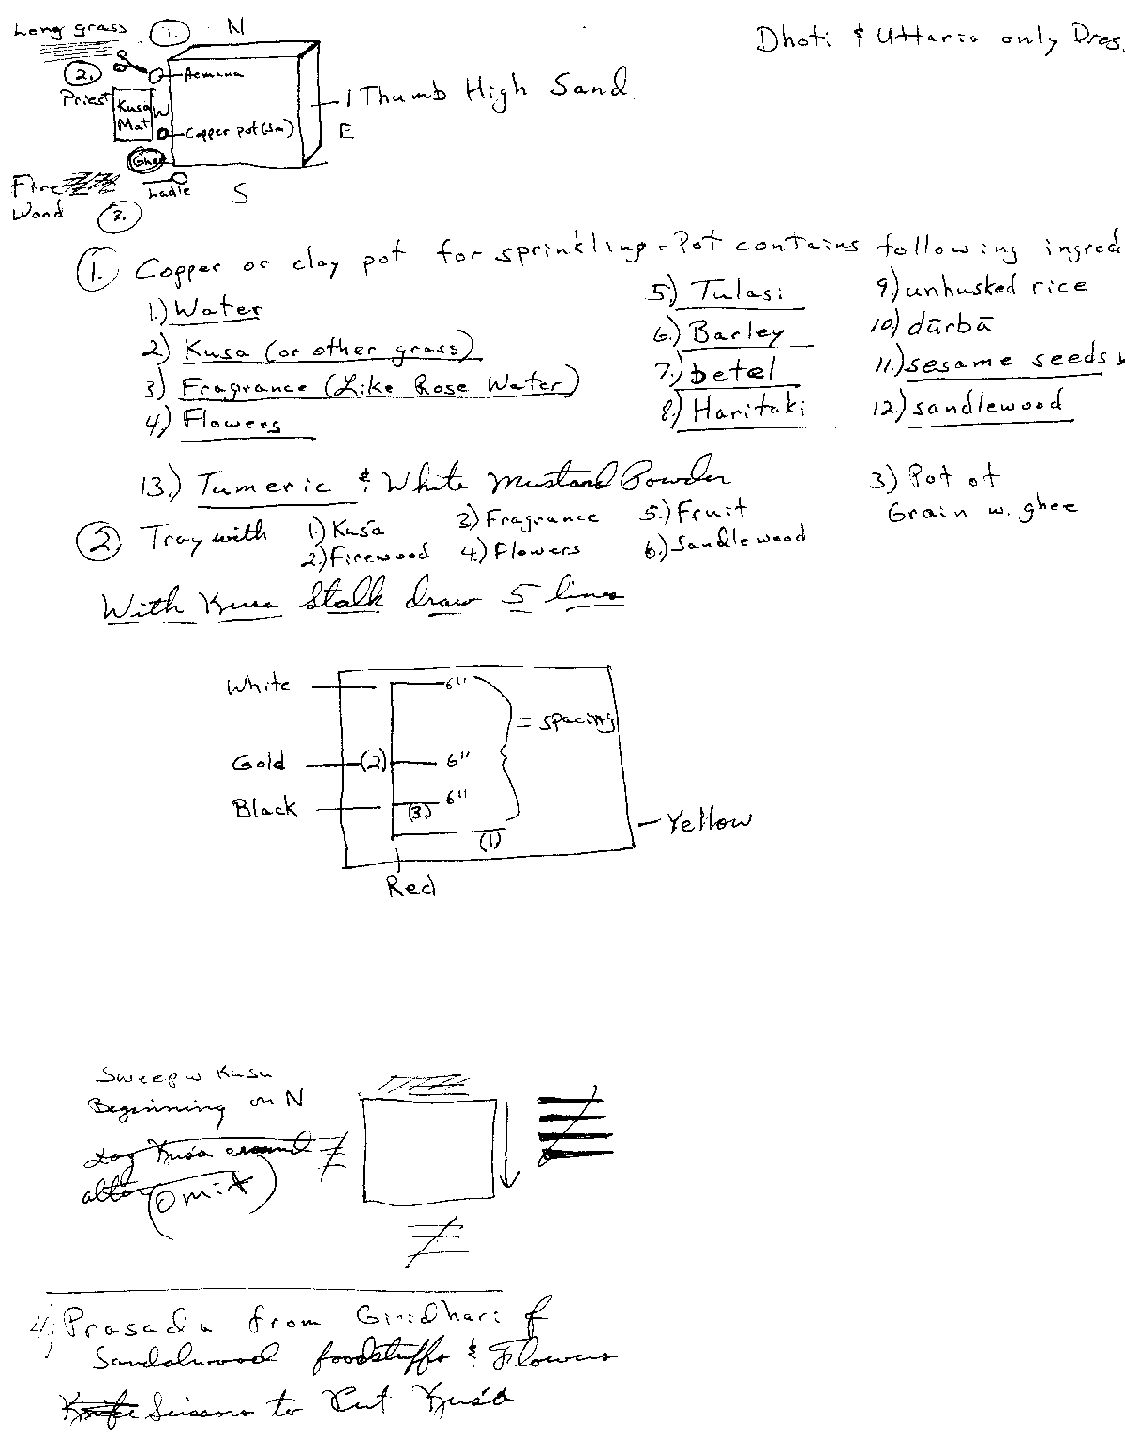 Long grass 1. N
Dhoti & Uttaria only Dres.
2.
Acmana
Priest
Kusa
Mat
W
1 Thumb High Sand
Copper pot (sm)
E
Ghee
Fire
Wood
Ladle
S
2.
1. Copper or clay pot for sprinkling - Pot contains following ingred
1.) Water
2.) Kusa (or other grass)
3) Fragrance (Like Rose Water)
4.) Flowers
5.) Tulasi
6.) Barley
7.) betel
8.) Haritaki
9) unhusked rice
10) dūrbā
11.) sesame seeds
12) sandlewood
13.) Tumeric & White Mustard Powder
2. Tray with
1) Kuśa
2) Firewood
3) Fragrance
4) Flowers
5.) Fruit
6.) Sandlewood
3) Pot of
Grain w. ghee
With Kusa Stalk draw 5 lines
White
6"
= spacing
Gold
(2)
6"
Black
(3)
6"
(1)
Yellow
Red
Sweep w Kusa
Beginning on N
Lay Kusa around
altar (omit)
4) Prasada from Giridhari of
Sandalwood foodstuffs & Flowers
Knife Scissors to Cut Kuśa